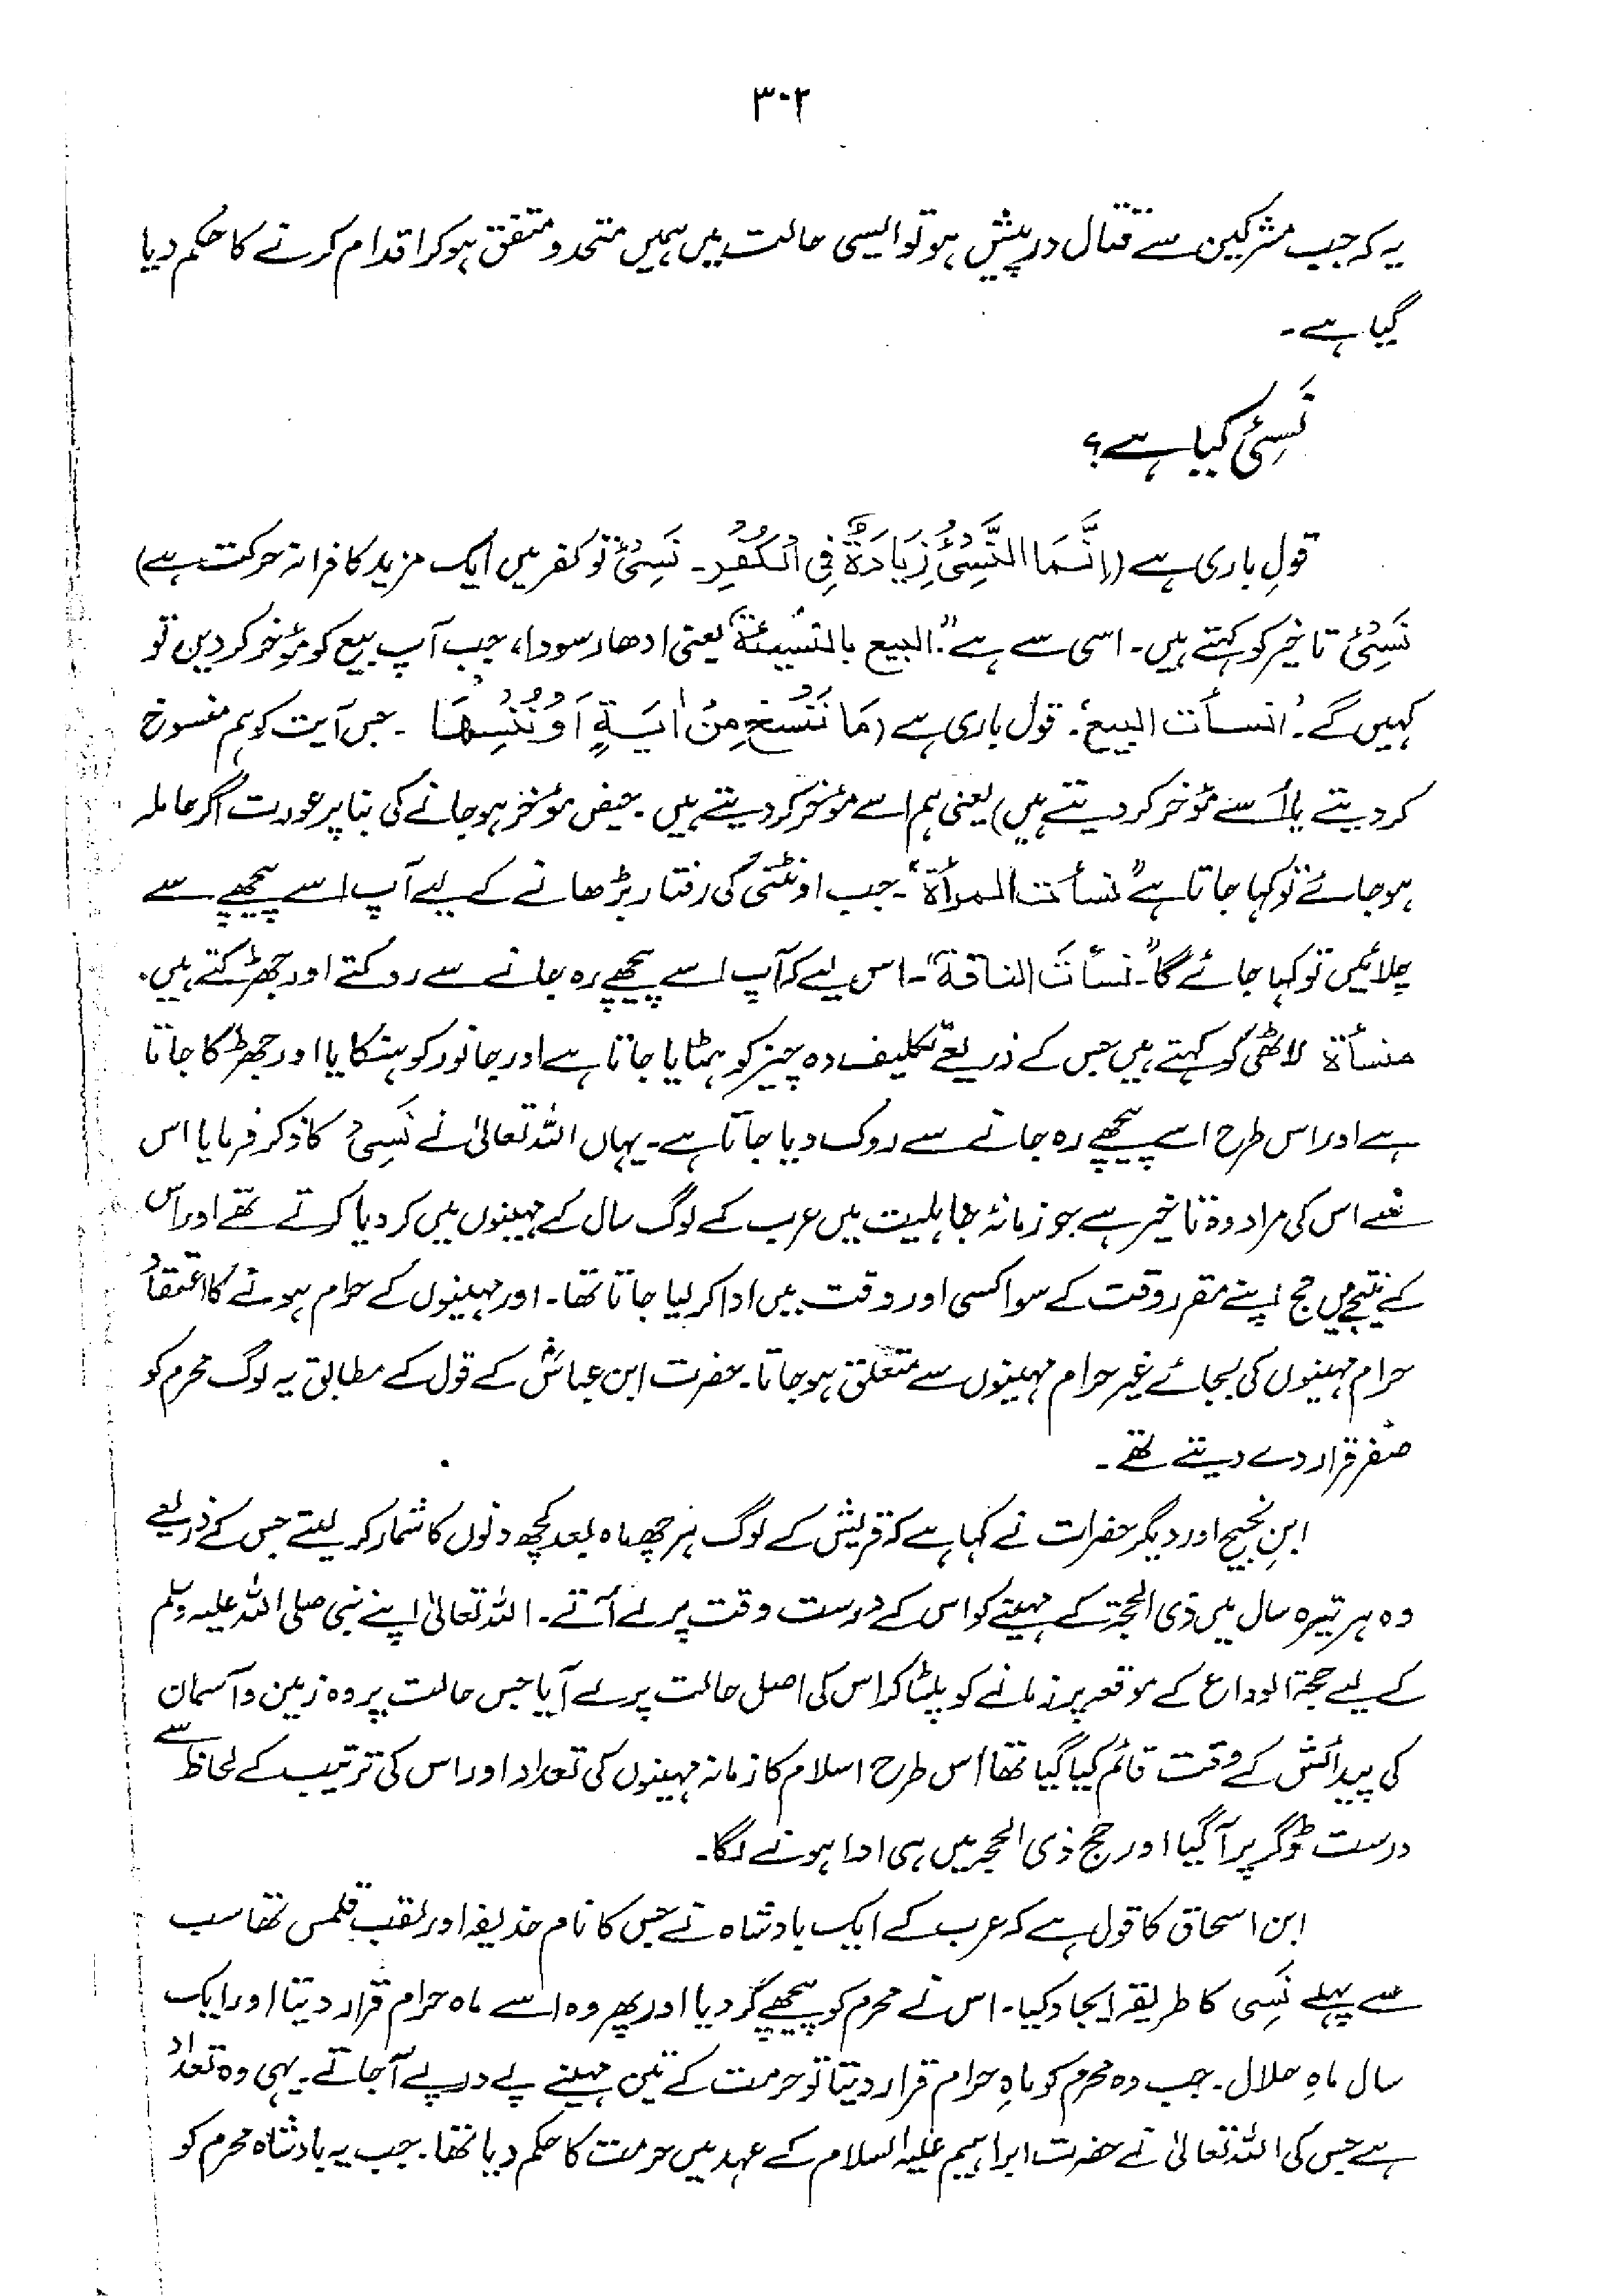 ۳۰۲
یہ کہ جب مشرکین سے قتال درپیش ہو تو ایسی حالت میں ہمیں متحد و متفق ہو کر اقدام کرنے کا حکم دیا
گیا ہے۔
نَسِیْٔ کیا ہے؟
قولِ باری ہے (اِنَّمَا النَّسِیْٓءُ زِیَادَۃٌ فِی الْکُفْرِ۔ نَسِیْٔ تو کفر میں ایک مزید کافرانہ حرکت ہے)
نَسِیْٔ تاخیر کو کہتے ہیں۔ اسی سے ہے "البیع بالنسیئۃ" یعنی ادھار سودا، جب آپ بیع کو مؤخر کر دیں تو
کہیں گے "انسأت البیع"۔ قول باری ہے (مَا نَنْسَخْ مِنْ اٰیَۃٍ اَوْ نُنْسِھَا ۔ جس آیت کو ہم منسوخ
کر دیتے یا اُسے مؤخر کر دیتے ہیں) یعنی ہم اسے مؤخر کر دیتے ہیں۔ حیض مؤخر ہو جانے کی بنا پر عورت اگر حاملہ
ہو جائے تو کہا جاتا ہے "نسأت المرأۃ"۔ جب اونٹنی کی رفتار بڑھانے کے لیے آپ اسے پیچھے سے
چلائیں تو کہا جائے گا "نسأتَ الناقۃ"۔ اس لیے کہ آپ اسے پیچھے رہ جانے سے روکتے اور جھڑکتے ہیں۔
منسأۃ لاٹھی کو کہتے ہیں جس کے ذریعے تکلیف دہ چیز کو ہٹایا جاتا ہے اور جانور کو ہنکایا اور جھڑکا جاتا
ہے اور اس طرح اسے پیچھے رہ جانے سے روک دیا جاتا ہے۔ یہاں اللہ تعالیٰ نے نَسِیْٔ کا ذکر فرمایا اس
نے اس کی مراد وہ تاخیر ہے جو زمانۂ جاہلیت میں عرب کے لوگ سال کے مہینوں میں کر دیا کرتے تھے اور اس
کے نتیجے میں حج اپنے مقرر وقت کے سوا کسی اور وقت میں ادا کر لیا جاتا تھا۔ اور مہینوں کے حرام ہونے کا اعتقاد
حرام مہینوں کی بجائے غیر حرام مہینوں سے متعلق ہو جاتا۔ حضرت ابن عباسؓ کے قول کے مطابق یہ لوگ محرم کو
صفر قرار دے دیتے تھے۔
ابنِ نجیح اور دیگر حضرات نے کہا ہے کہ قریش کے لوگ ہر چھ ماہ بعد کچھ دنوں کا شمار کر لیتے جس کے ذریعے
وہ ہر تیرہ سال میں ذی الحجۃ کے مہینے کو اس کے درست وقت پر لے آتے۔ اللہ تعالیٰ اپنے نبی صلی اللہ علیہ وسلم
کے لیے حجۃ الوداع کے موقعہ پر زمانے کو پلٹا کر اس کی اصل حالت پر لے آیا جس حالت پر وہ زمین و آسمان
کی پیدائش کے وقت قائم کیا گیا تھا اس طرح اسلام کا زمانہ مہینوں کی تعداد اور اس کی ترتیب کے لحاظ سے
درست ڈگر پر آگیا اور حج ذی الحجہ میں ہی ادا ہونے لگا۔
ابن اسحاق کا قول ہے کہ عرب کے ایک بادشاہ نے جس کا نام حذیفہ اور لقب قلمس تھا سب
سے پہلے نَسِی کا طریقہ ایجاد کیا۔ اس نے محرم کو پیچھے کر دیا اور پھر وہ اسے ماہ حرام قرار دیتا اور ایک
سال ماہِ حلال۔ جب وہ محرم کو ماہِ حرام قرار دیتا تو حرمت کے تین مہینے پے درپے آجاتے۔ یہی وہ تعداد
ہے جس کی اللہ تعالیٰ نے حضرت ابراہیم علیہ السلام کے عہد میں حرمت کا حکم دیا تھا۔ جب یہ بادشاہ محرم کو